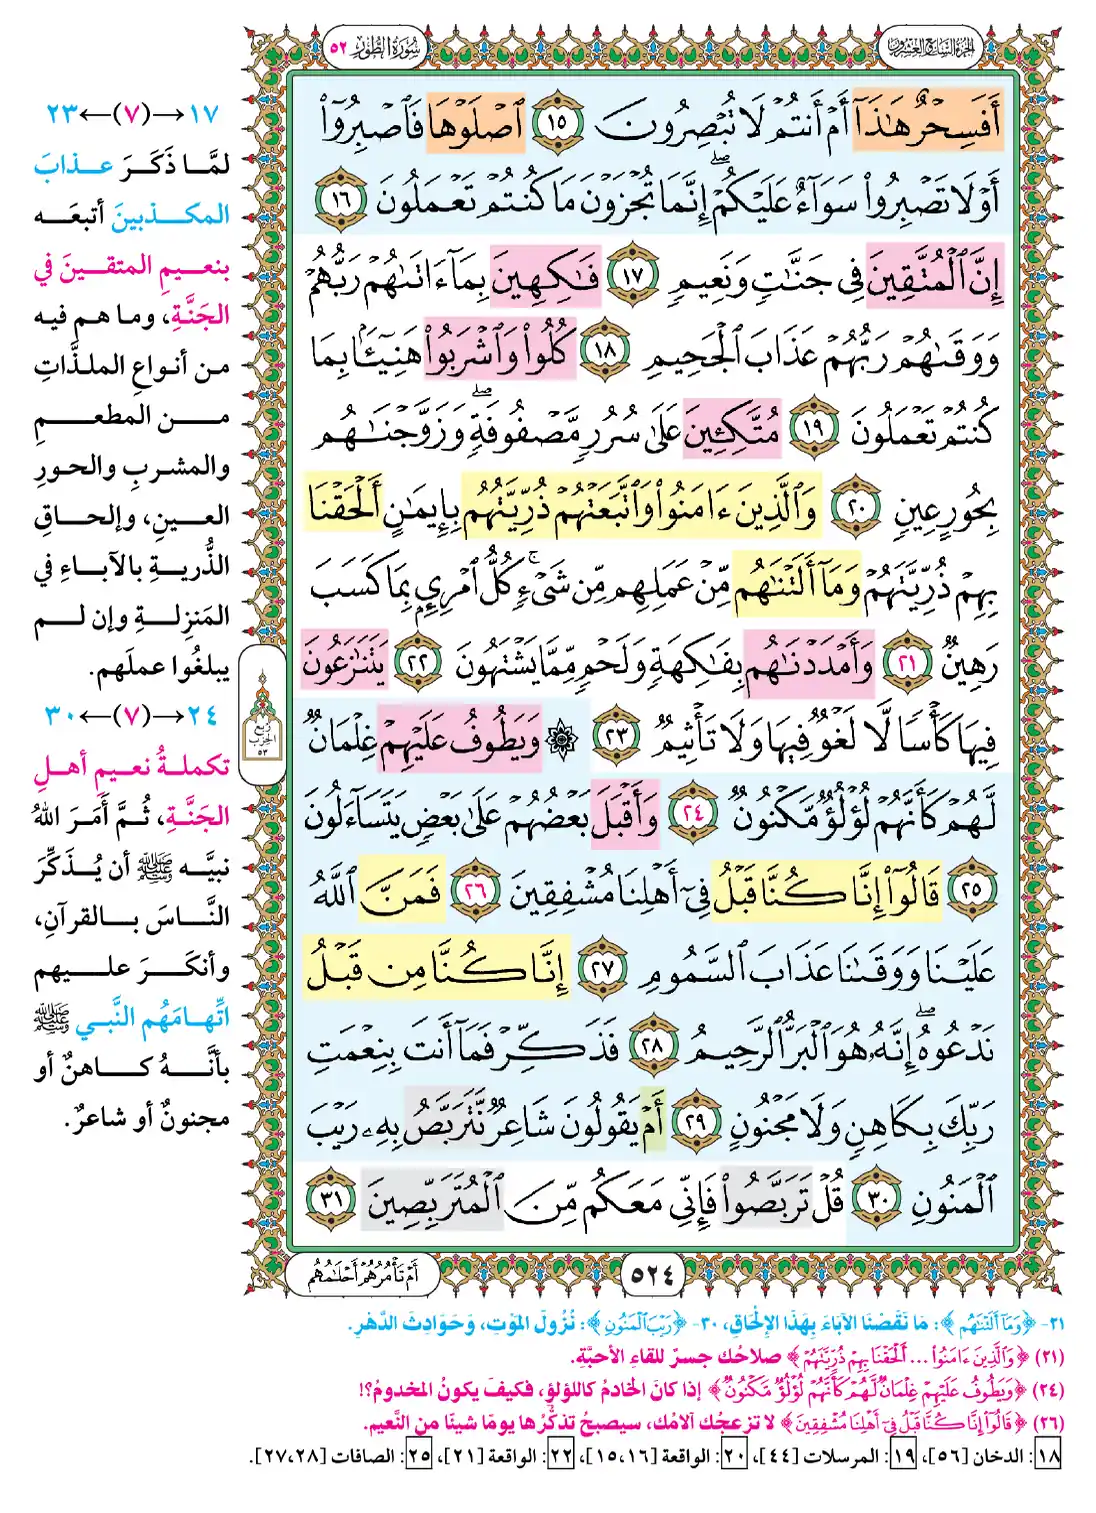 الجزء السابع والعشرون
سورة الطور ٥٢
أَفَسِحْرٌ هَٰذَآ أَمْ أَنتُمْ لَا تُبْصِرُونَ ١٥ ٱصْلَوْهَا فَٱصْبِرُوٓا۟
أَوْ لَا تَصْبِرُوا۟ سَوَآءٌ عَلَيْكُمْ ۖ إِنَّمَا تُجْزَوْنَ مَا كُنتُمْ تَعْمَلُونَ ١٦
إِنَّ ٱلْمُتَّقِينَ فِى جَنَّٰتٍ وَنَعِيمٍ ١٧ فَٰكِهِينَ بِمَآ ءَاتَىٰهُمْ رَبُّهُمْ
وَوَقَىٰهُمْ رَبُّهُمْ عَذَابَ ٱلْجَحِيمِ ١٨ كُلُوا۟ وَٱشْرَبُوا۟ هَنِيٓـًٔۢا بِمَا
كُنتُمْ تَعْمَلُونَ ١٩ مُتَّكِـِٔينَ عَلَىٰ سُرُرٍ مَّصْفُوفَةٍ ۖ وَزَوَّجْنَٰهُم
بِحُورٍ عِينٍ ٢٠ وَٱلَّذِينَ ءَامَنُوا۟ وَٱتَّبَعَتْهُمْ ذُرِّيَّتُهُم بِإِيمَٰنٍ أَلْحَقْنَا
بِهِمْ ذُرِّيَّتَهُمْ وَمَآ أَلَتْنَٰهُم مِّنْ عَمَلِهِم مِّن شَىْءٍ ۚ كُلُّ ٱمْرِئٍۭ بِمَا كَسَبَ
رَهِينٌ ٢١ وَأَمْدَدْنَٰهُم بِفَٰكِهَةٍ وَلَحْمٍ مِّمَّا يَشْتَهُونَ ٢٢ يَتَنَٰزَعُونَ
فِيهَا كَأْسًا لَّا لَغْوٌ فِيهَا وَلَا تَأْثِيمٌ ٢٣ ۞ وَيَطُوفُ عَلَيْهِمْ غِلْمَانٌ
لَّهُمْ كَأَنَّهُمْ لُؤْلُؤٌ مَّكْنُونٌ ٢٤ وَأَقْبَلَ بَعْضُهُمْ عَلَىٰ بَعْضٍ يَتَسَآءَلُونَ
٢٥ قَالُوٓا۟ إِنَّا كُنَّا قَبْلُ فِىٓ أَهْلِنَا مُشْفِقِينَ ٢٦ فَمَنَّ ٱللَّهُ
عَلَيْنَا وَوَقَىٰنَا عَذَابَ ٱلسَّمُومِ ٢٧ إِنَّا كُنَّا مِن قَبْلُ
نَدْعُوهُ ۖ إِنَّهُۥ هُوَ ٱلْبَرُّ ٱلرَّحِيمُ ٢٨ فَذَكِّرْ فَمَآ أَنتَ بِنِعْمَتِ
رَبِّكَ بِكَاهِنٍ وَلَا مَجْنُونٍ ٢٩ أَمْ يَقُولُونَ شَاعِرٌ نَّتَرَبَّصُ بِهِۦ رَيْبَ
ٱلْمَنُونِ ٣٠ قُلْ تَرَبَّصُوا۟ فَإِنِّى مَعَكُم مِّنَ ٱلْمُتَرَبِّصِينَ ٣١
٥٢٤
أَمْ تَأْمُرُهُمْ أَحْلَٰمُهُم
ربع
الحزب
٥٣
١٧→(٧)←٢٣
لمَّا ذَكَرَ عذابَ
المكذبينَ أتبعَه
بنعيمِ المتقينَ في
الجَنَّةِ، وما هم فيه
من أنواعِ الملذَّاتِ
من المطعمِ
والمشربِ والحورِ
العينِ، وإلحاقِ
الذُّريةِ بالآباءِ في
المَنزِلةِ وإن لم
يبلغُوا عملَهم.
٢٤→(٧)←٣٠
تكملةُ نعيمِ أهلِ
الجَنَّةِ، ثُمَّ أَمَرَ اللهُ
نبيَّه ﷺ أن يُذَكِّرَ
النَّاسَ بالقرآنِ،
وأنكَرَ عليهم
اتِّهامَهُم النَّبي ﷺ
بأنَّهُ كاهنٌ أو
مجنونٌ أو شاعرٌ.
٢١- ﴿وَمَآ أَلَتْنَٰهُم﴾: مَا نَقَصْنَا الآبَاءَ بِهَذَا الإِلْحَاقِ، ٣٠- ﴿رَيْبَ ٱلْمَنُونِ﴾: نُزُولَ المَوْتِ، وَحَوَادِثَ الدَّهْرِ.
(٢١) ﴿وَٱلَّذِينَ ءَامَنُوا۟ ... أَلْحَقْنَا بِهِمْ ذُرِّيَّتَهُمْ﴾ صلاحُك جسرٌ للقاءِ الأحبَّةِ.
(٢٤) ﴿وَيَطُوفُ عَلَيْهِمْ غِلْمَانٌ لَّهُمْ كَأَنَّهُمْ لُؤْلُؤٌ مَّكْنُونٌ﴾ إذا كانَ الخادمُ كاللؤلؤِ، فكيفَ يكونُ المخدومُ؟!
(٢٦) ﴿قَالُوٓا۟ إِنَّا كُنَّا قَبْلُ فِىٓ أَهْلِنَا مُشْفِقِينَ﴾ لا تزعجْك آلامُك، سيصبحُ تذكُّرُها يومًا شيئًا من النَّعيمِ.
١٨: الدخان [٥٦]، ١٩: المرسلات [٤٤]، ٢٠: الواقعة [١٥،١٦]، ٢٢: الواقعة [٢١]، ٢٥: الصافات [٢٧،٢٨].